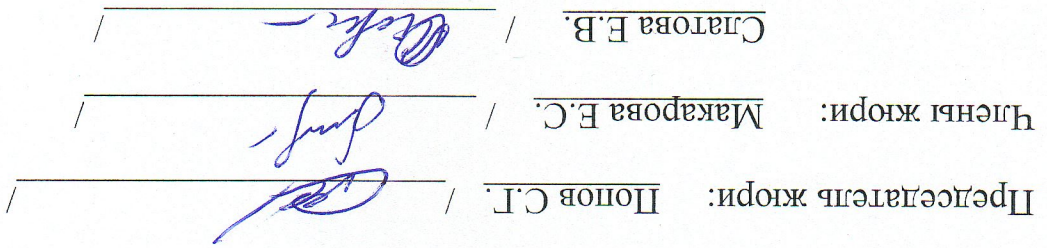 Председатель жюри: Попов С.Г. / /
Члены жюри: Макарова Е.С. / /
Слатова Е.В. / /